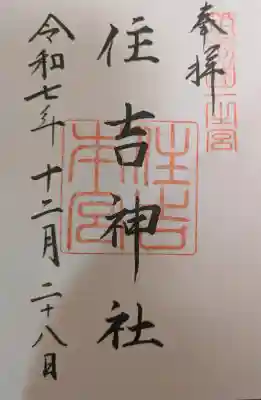 奉拝
住吉神社
令和七年十二月二十八日
住吉
本宮